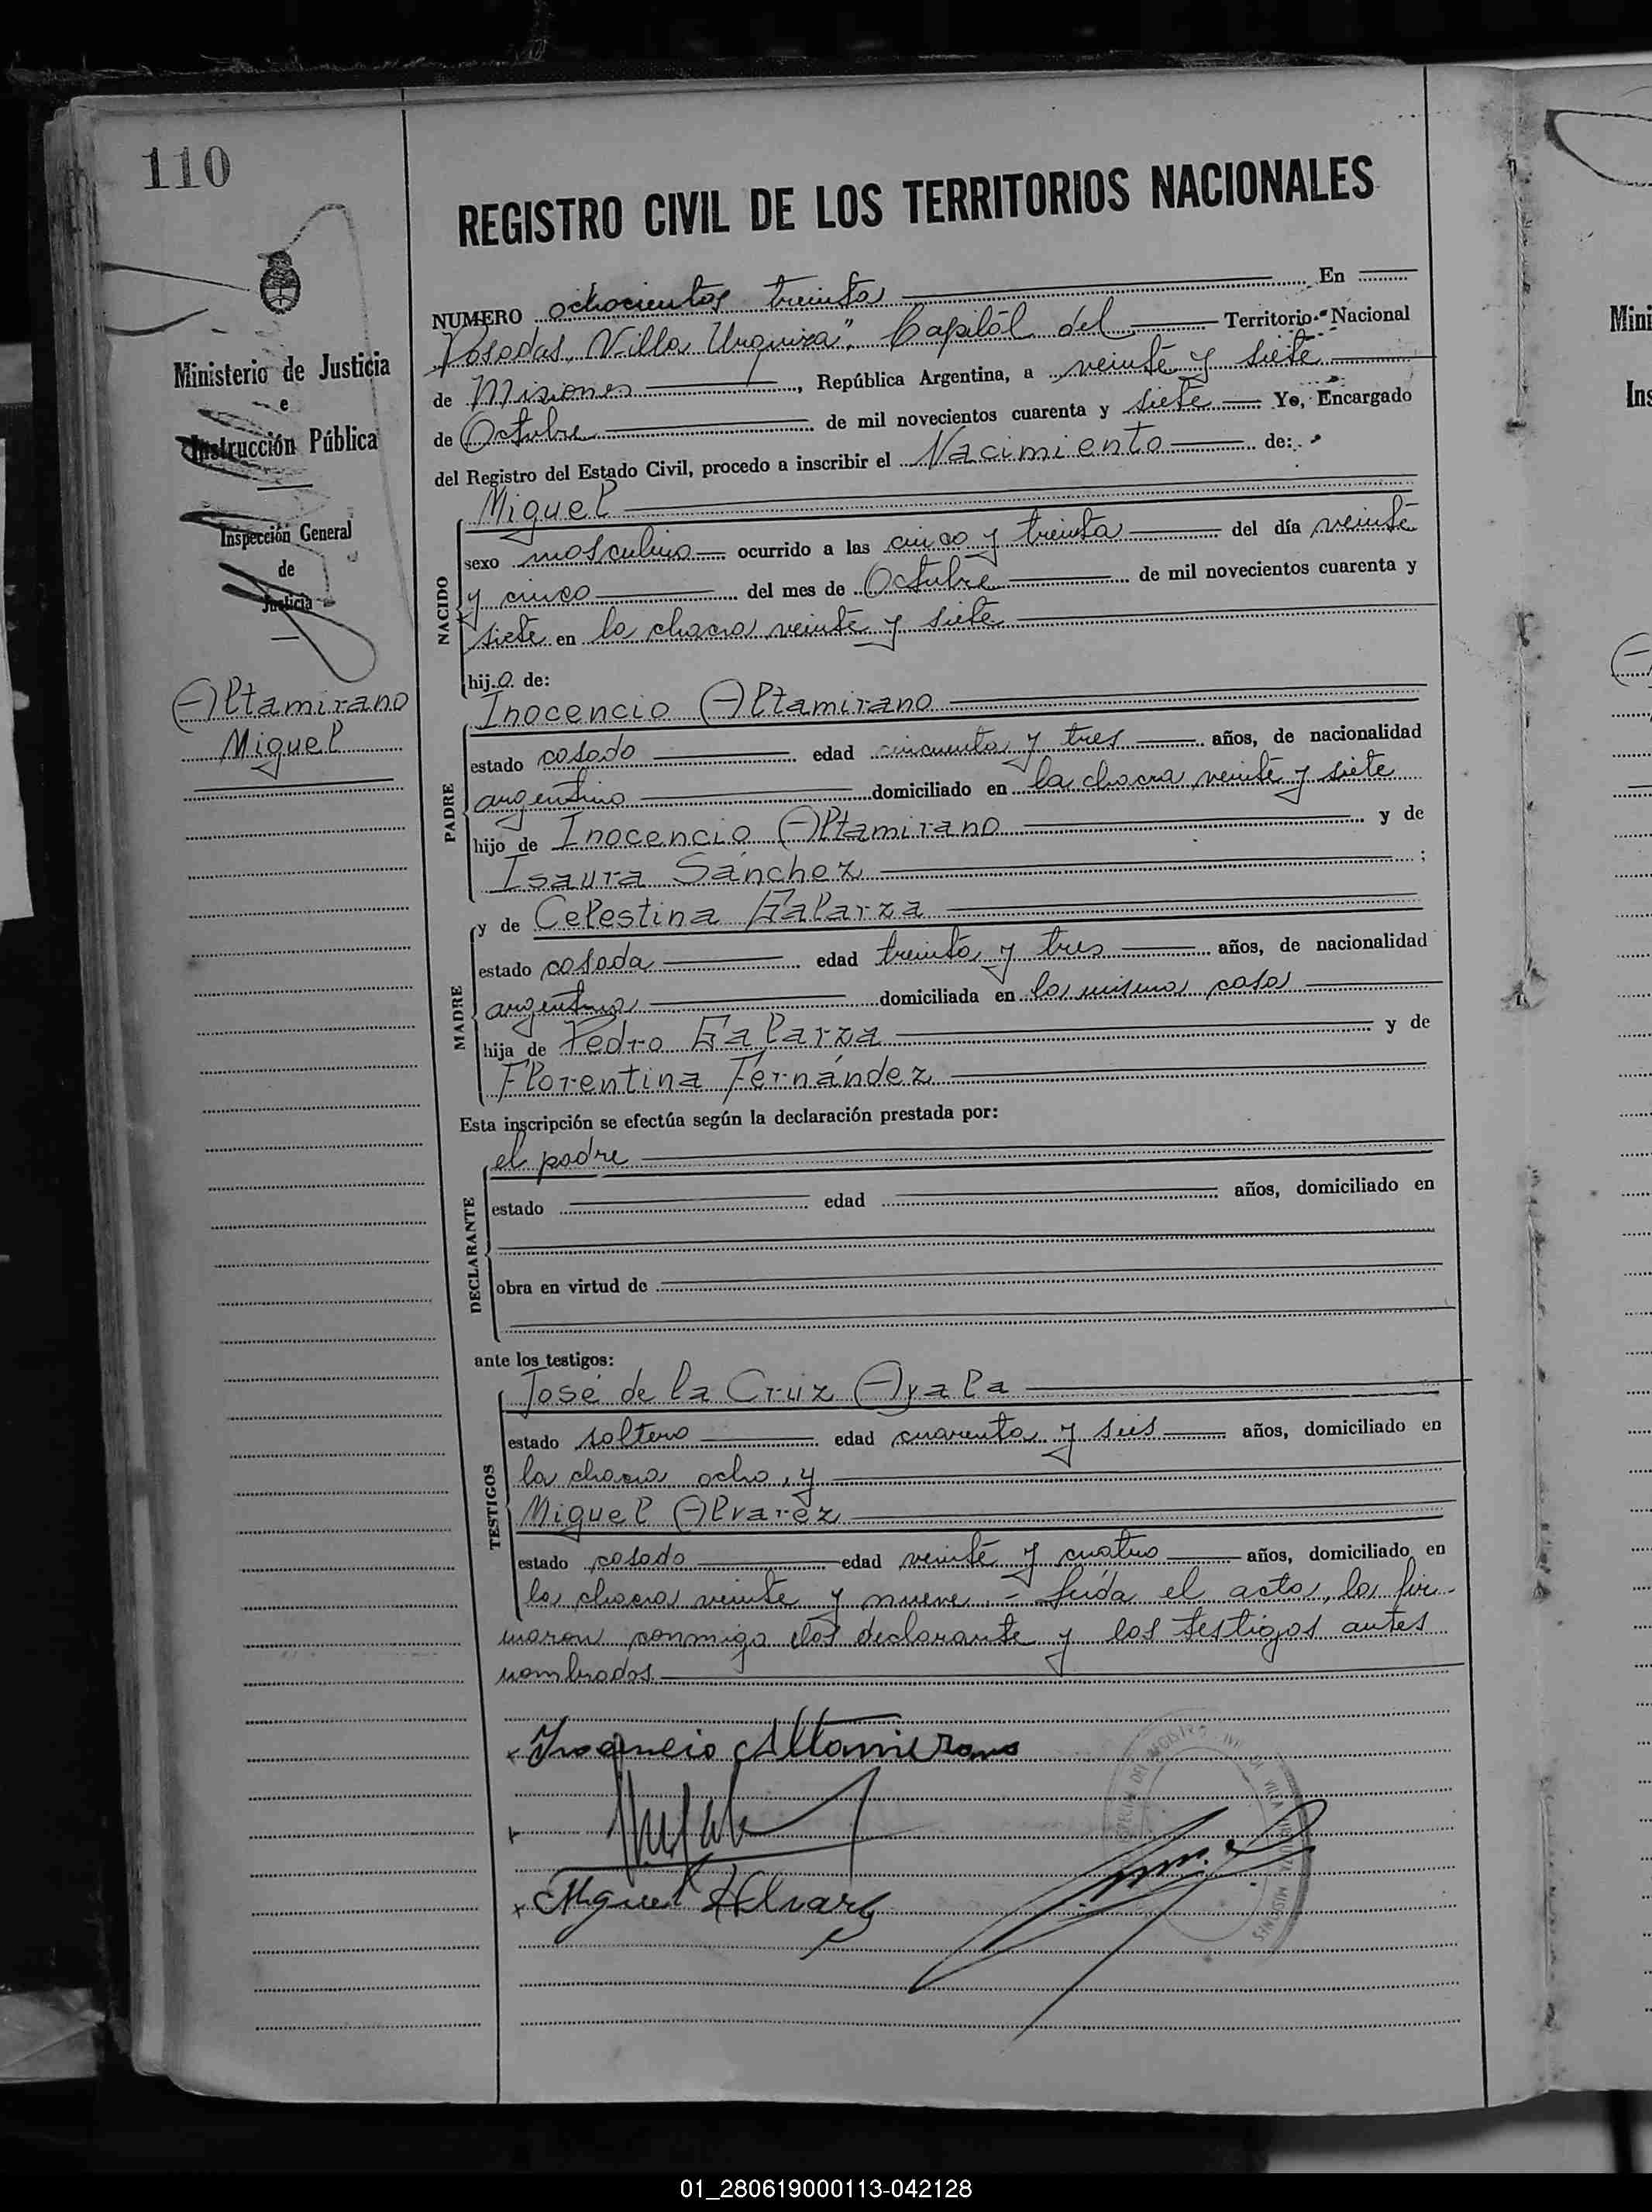 110
REGISTRO CIVIL DE LOS TERRITORIOS NACIONALES
NUMERO ochocientos treinta En
Posadas, "Villa Urquiza", Capitál del Territorio Nacional
de Misiones, República Argentina, a veinte y siete
de Octubre de mil novecientos cuarenta y siete Yo, Encargado
del Registro del Estado Civil, procedo a inscribir el Nacimiento de:
Ministerio de Justicia
e
Instrucción Pública
Inspección General
de
Justicia
Altamirano
Miguel
NACIDO
Miguel
sexo masculino ocurrido a las cinco y treinta del día veinte
y cinco del mes de Octubre de mil novecientos cuarenta y
siete en la chacra veinte y siete
hijo de:
PADRE
Inocencio Altamirano
estado casado edad cincuenta y tres años, de nacionalidad
argentino domiciliado en la chacra veinte y siete
hijo de Inocencio Altamirano y de
Isaura Sánchez ;
MADRE
y de Celestina Galarza
estado casada edad treinta y tres años, de nacionalidad
argentina domiciliada en la misma casa
hija de Pedro Galarza y de
Florentina Fernández
Esta inscripción se efectúa según la declaración prestada por:
DECLARANTE
el padre
estado edad años, domiciliado en
obra en virtud de
ante los testigos:
TESTIGOS
José de la Cruz Ayala
estado soltero edad cuarenta y seis años, domiciliado en
la chacra ocho, y
Miguel Alvarez
estado casado edad veinte y cuatro años, domiciliado en
la chacra veinte y nueve. = Leída el acta, la fir-
maron conmigo el declarante y los testigos antes
nombrados.
Inocencio Altamirano
Miguel Alvarez
REGISTRO CIVIL VILLA URQUIZA MISIONES
01_280619000113-042128